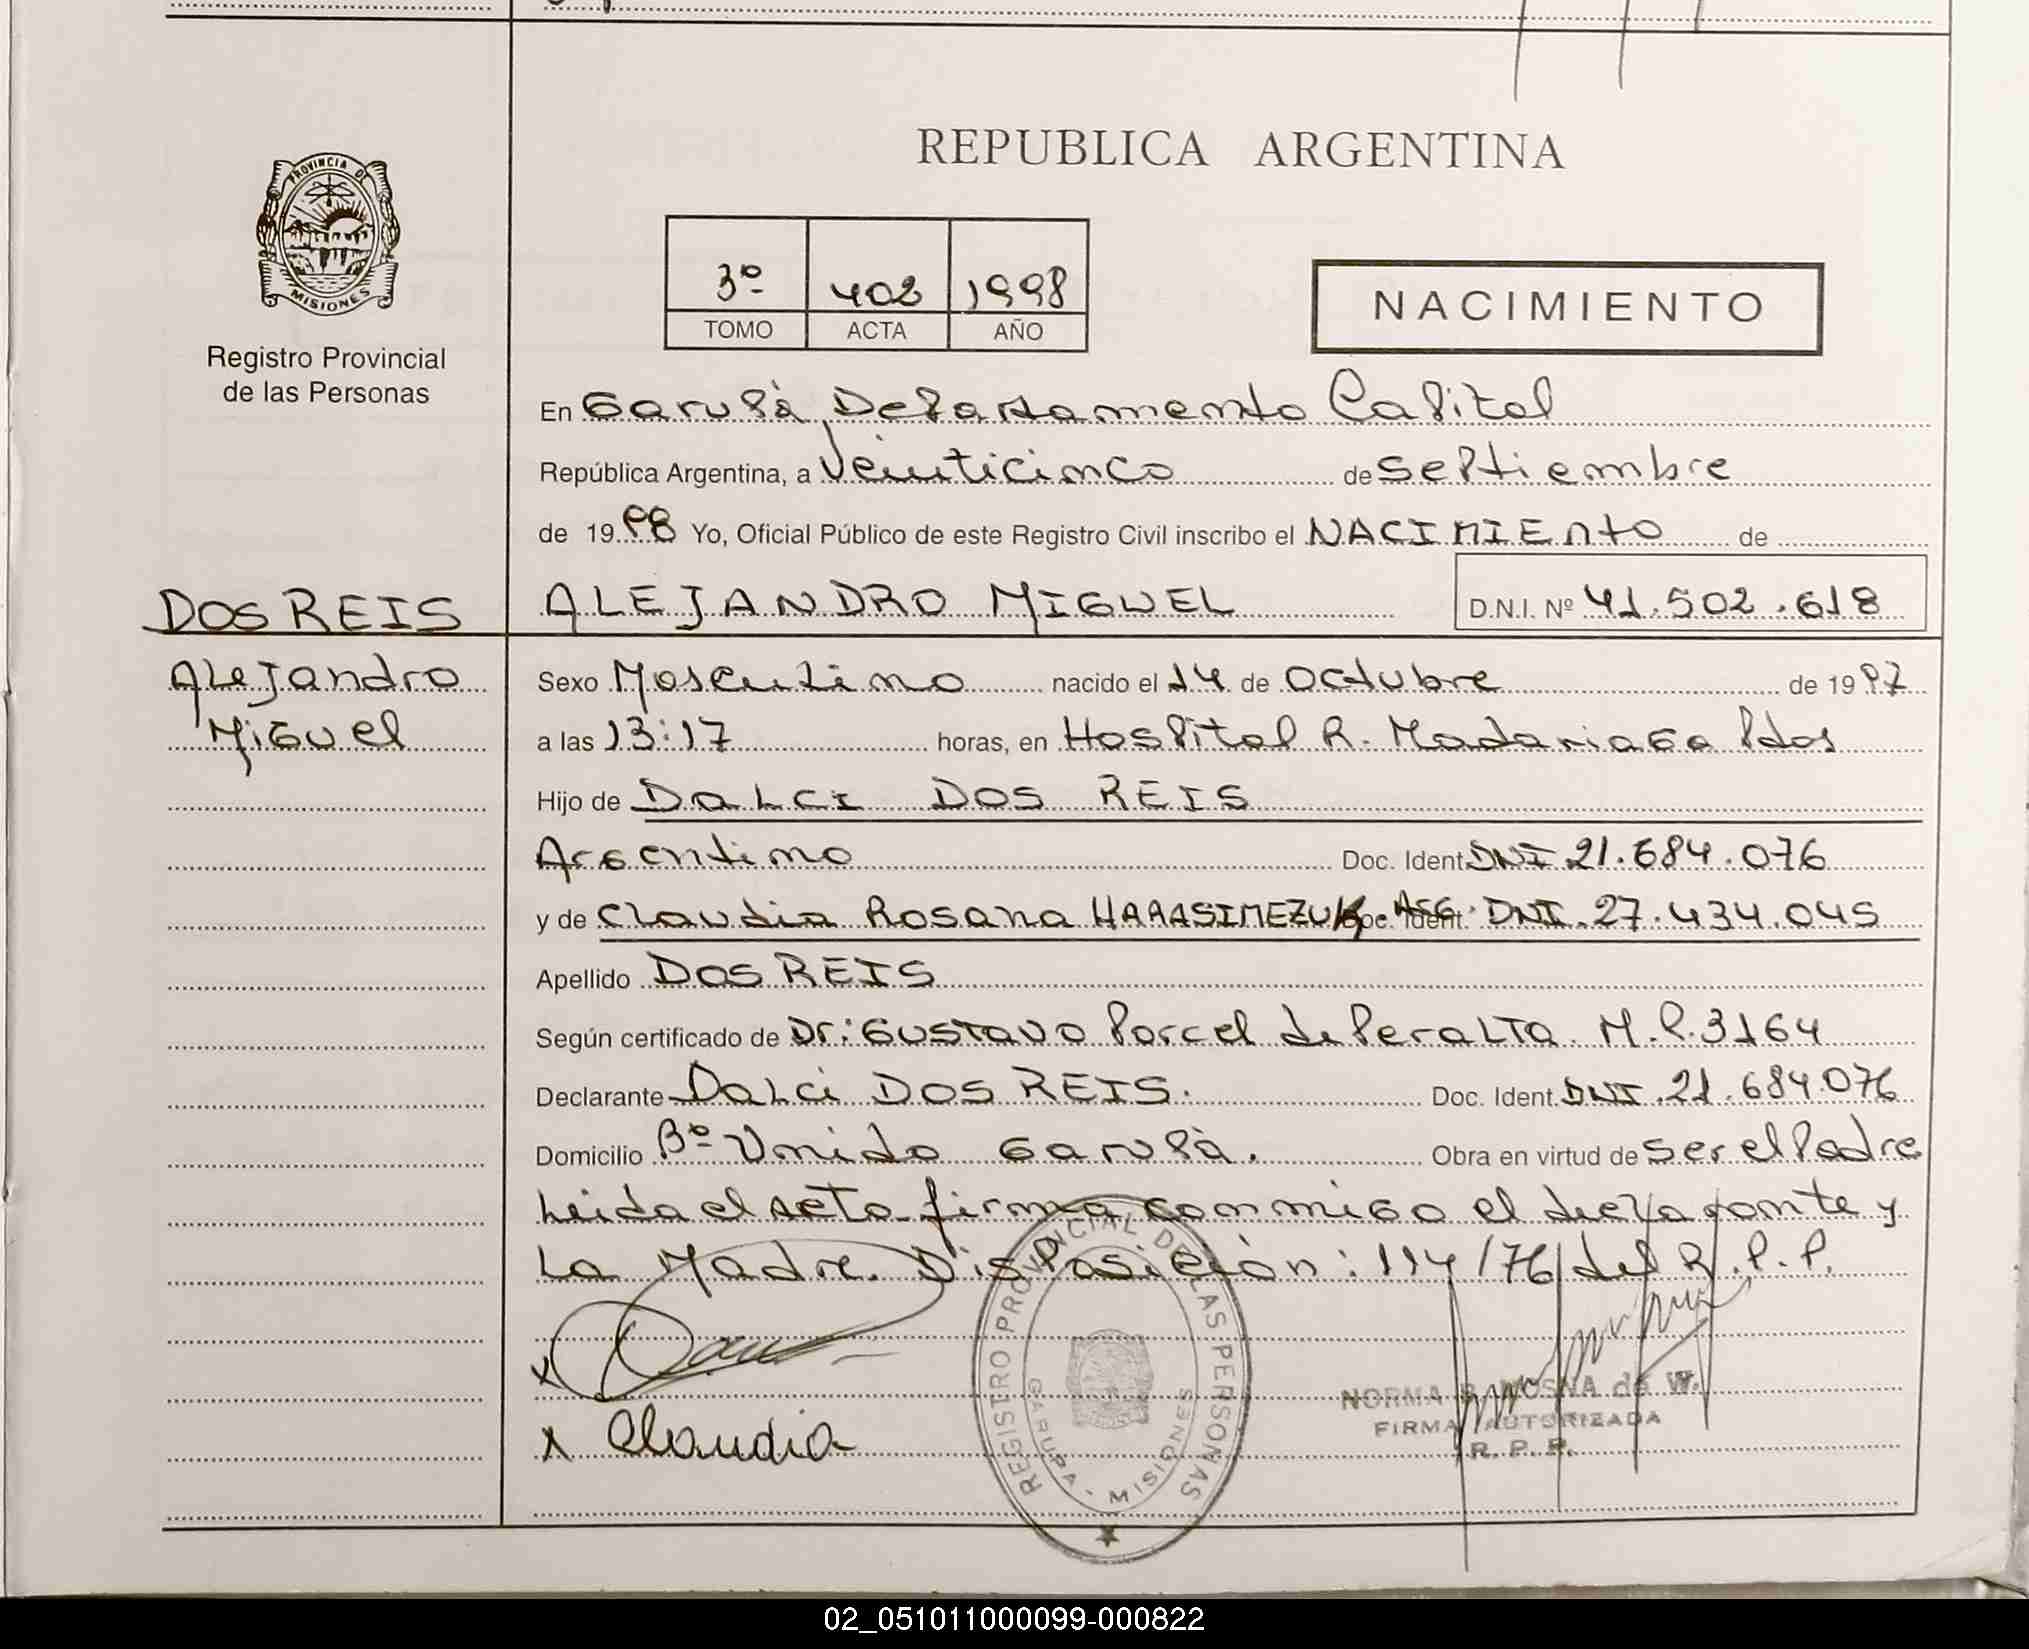 REPUBLICA ARGENTINA
PROVINCIA DE
MISIONES
Registro Provincial
de las Personas
3º 402 1998
TOMO ACTA AÑO
NACIMIENTO
En Garupà Departamento Capital
República Argentina, a Veinticinco de septiembre
de 1998 Yo, Oficial Público de este Registro Civil inscribo el NACIMIENTO de
DOS REIS
ALEJANDRO MIGUEL D.N.I. Nº 41.502.618
Alejandro
Miguel
Sexo Masculino nacido el 14 de Octubre de 1997
a las 13:17 horas, en Hospital R. Madariaga Pdas
Hijo de DALCI DOS REIS
Argentino Doc. Ident. DNI 21.684.076
y de Claudia Rosana Doc. Ident. Arg. DNI. 27.434.045
Apellido DOS REIS
Según certificado de Dr: Gustavo Porcel de Peralta. M.P. 3164
Declarante Dalci DOS REIS. Doc. Ident. DNI. 21.684.076
Domicilio Bº Unido Garupà. Obra en virtud de ser el Padre
Leida el acta firma conmigo el declarante y
La Madre. Disposición: 114/76 del R.P.P.
x
x Claudia
REGISTRO PROVINCIAL DE LAS PERSONAS
GARUPA - MISIONES
NORMA B. MOSNA de W.
FIRMA AUTORIZADA
R. P. P.
02_051011000099-000822